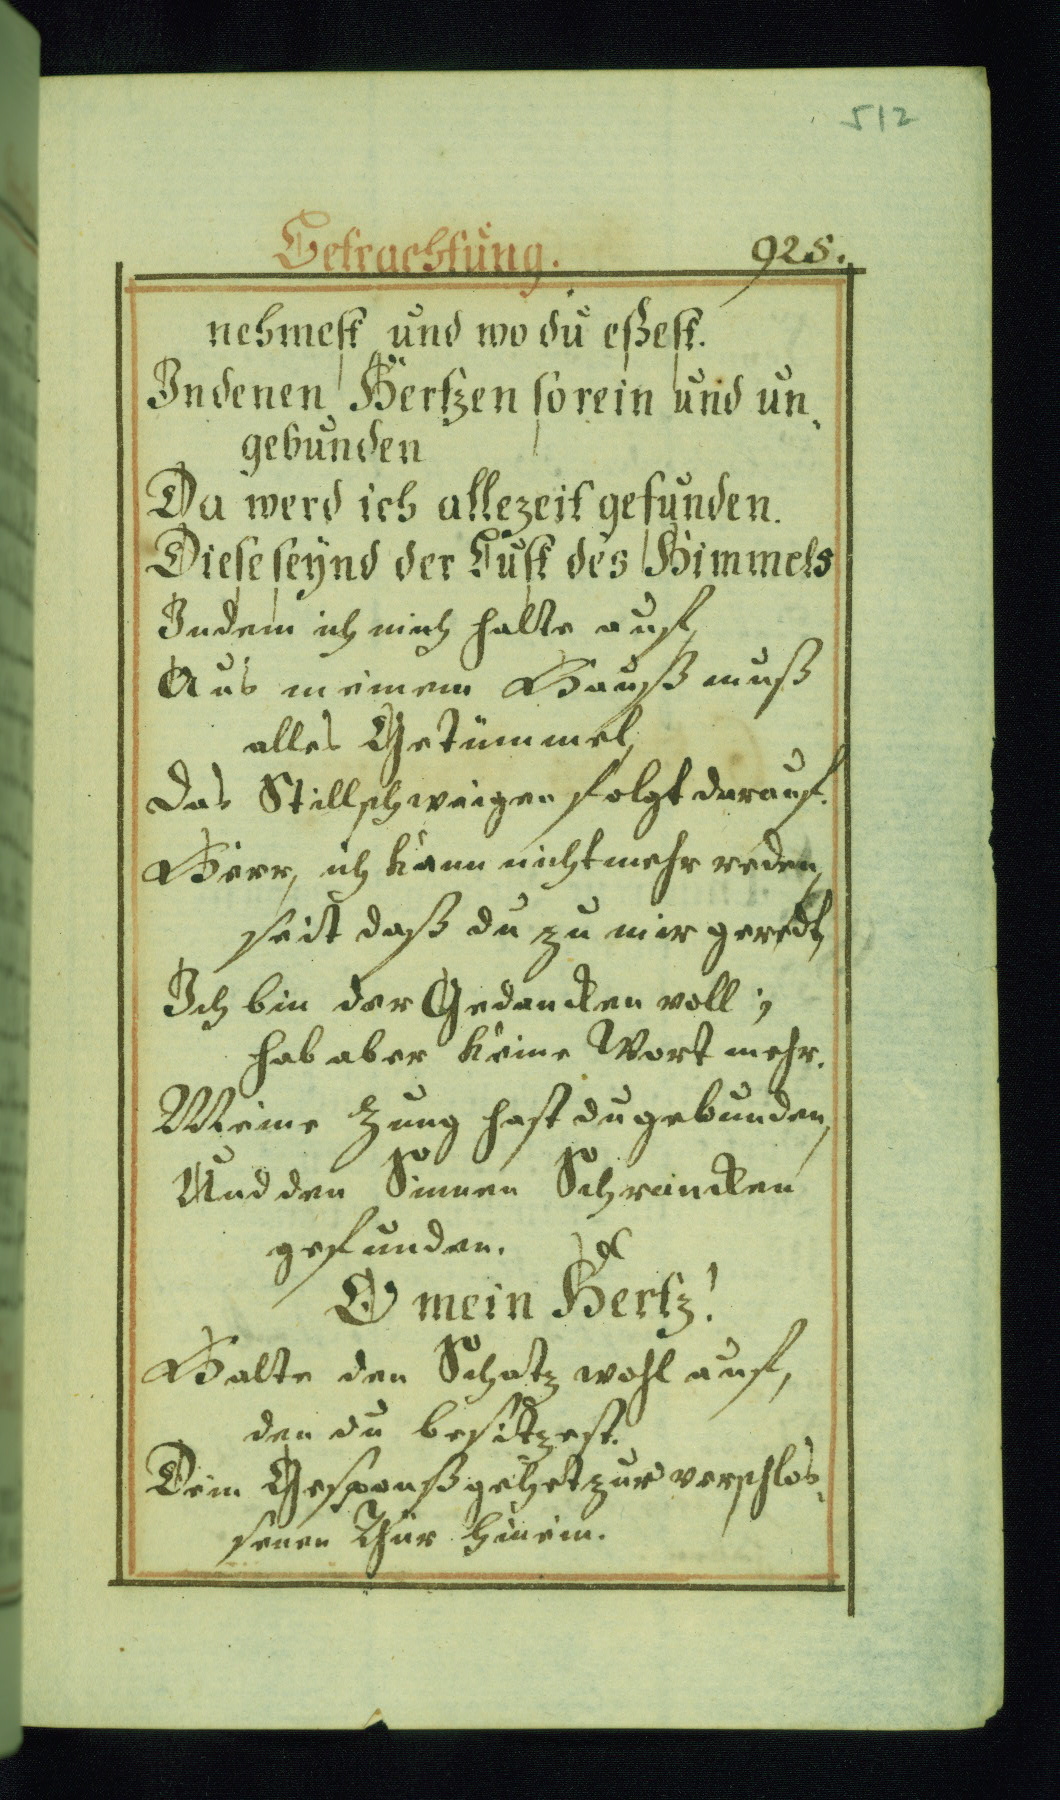 512
Betrachtung. 925.
nehmest und wo du eßest.
In denen Hertzen so rein und un-
gebunden
Da werd ich allezeit gefunden.
Diese seynd der Lust des Himmels
Indem ich mich halte auf,
Aus meinem Hauß muß
alles Getümmel,
Das Stillschweigen folgt darauf.
Herr, ich kann nicht mehr reden,
seit daß du zu mir geredt,
Ich bin der Gedancken voll;
hab aber keine Wort mehr.
Meine Zung hast du gebunden,
Und den Sinnen Schrancken
gefunden.
O mein Hertz!
Halte den Schatz wohl auf,
den du besitzest.
Dein Gesponß gehet zur verschlos-
senen Thür hinein.